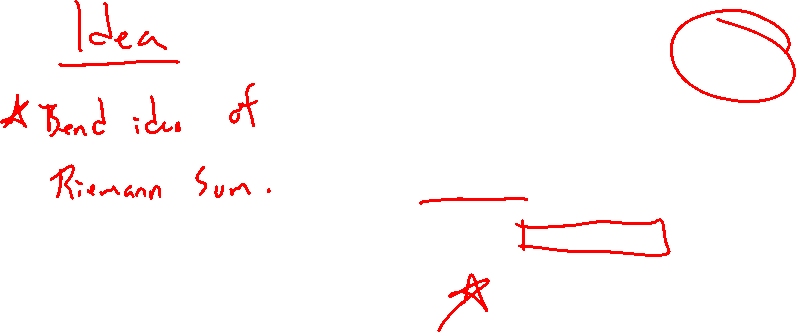 Idea
Bend idea of
Riemann Sum.